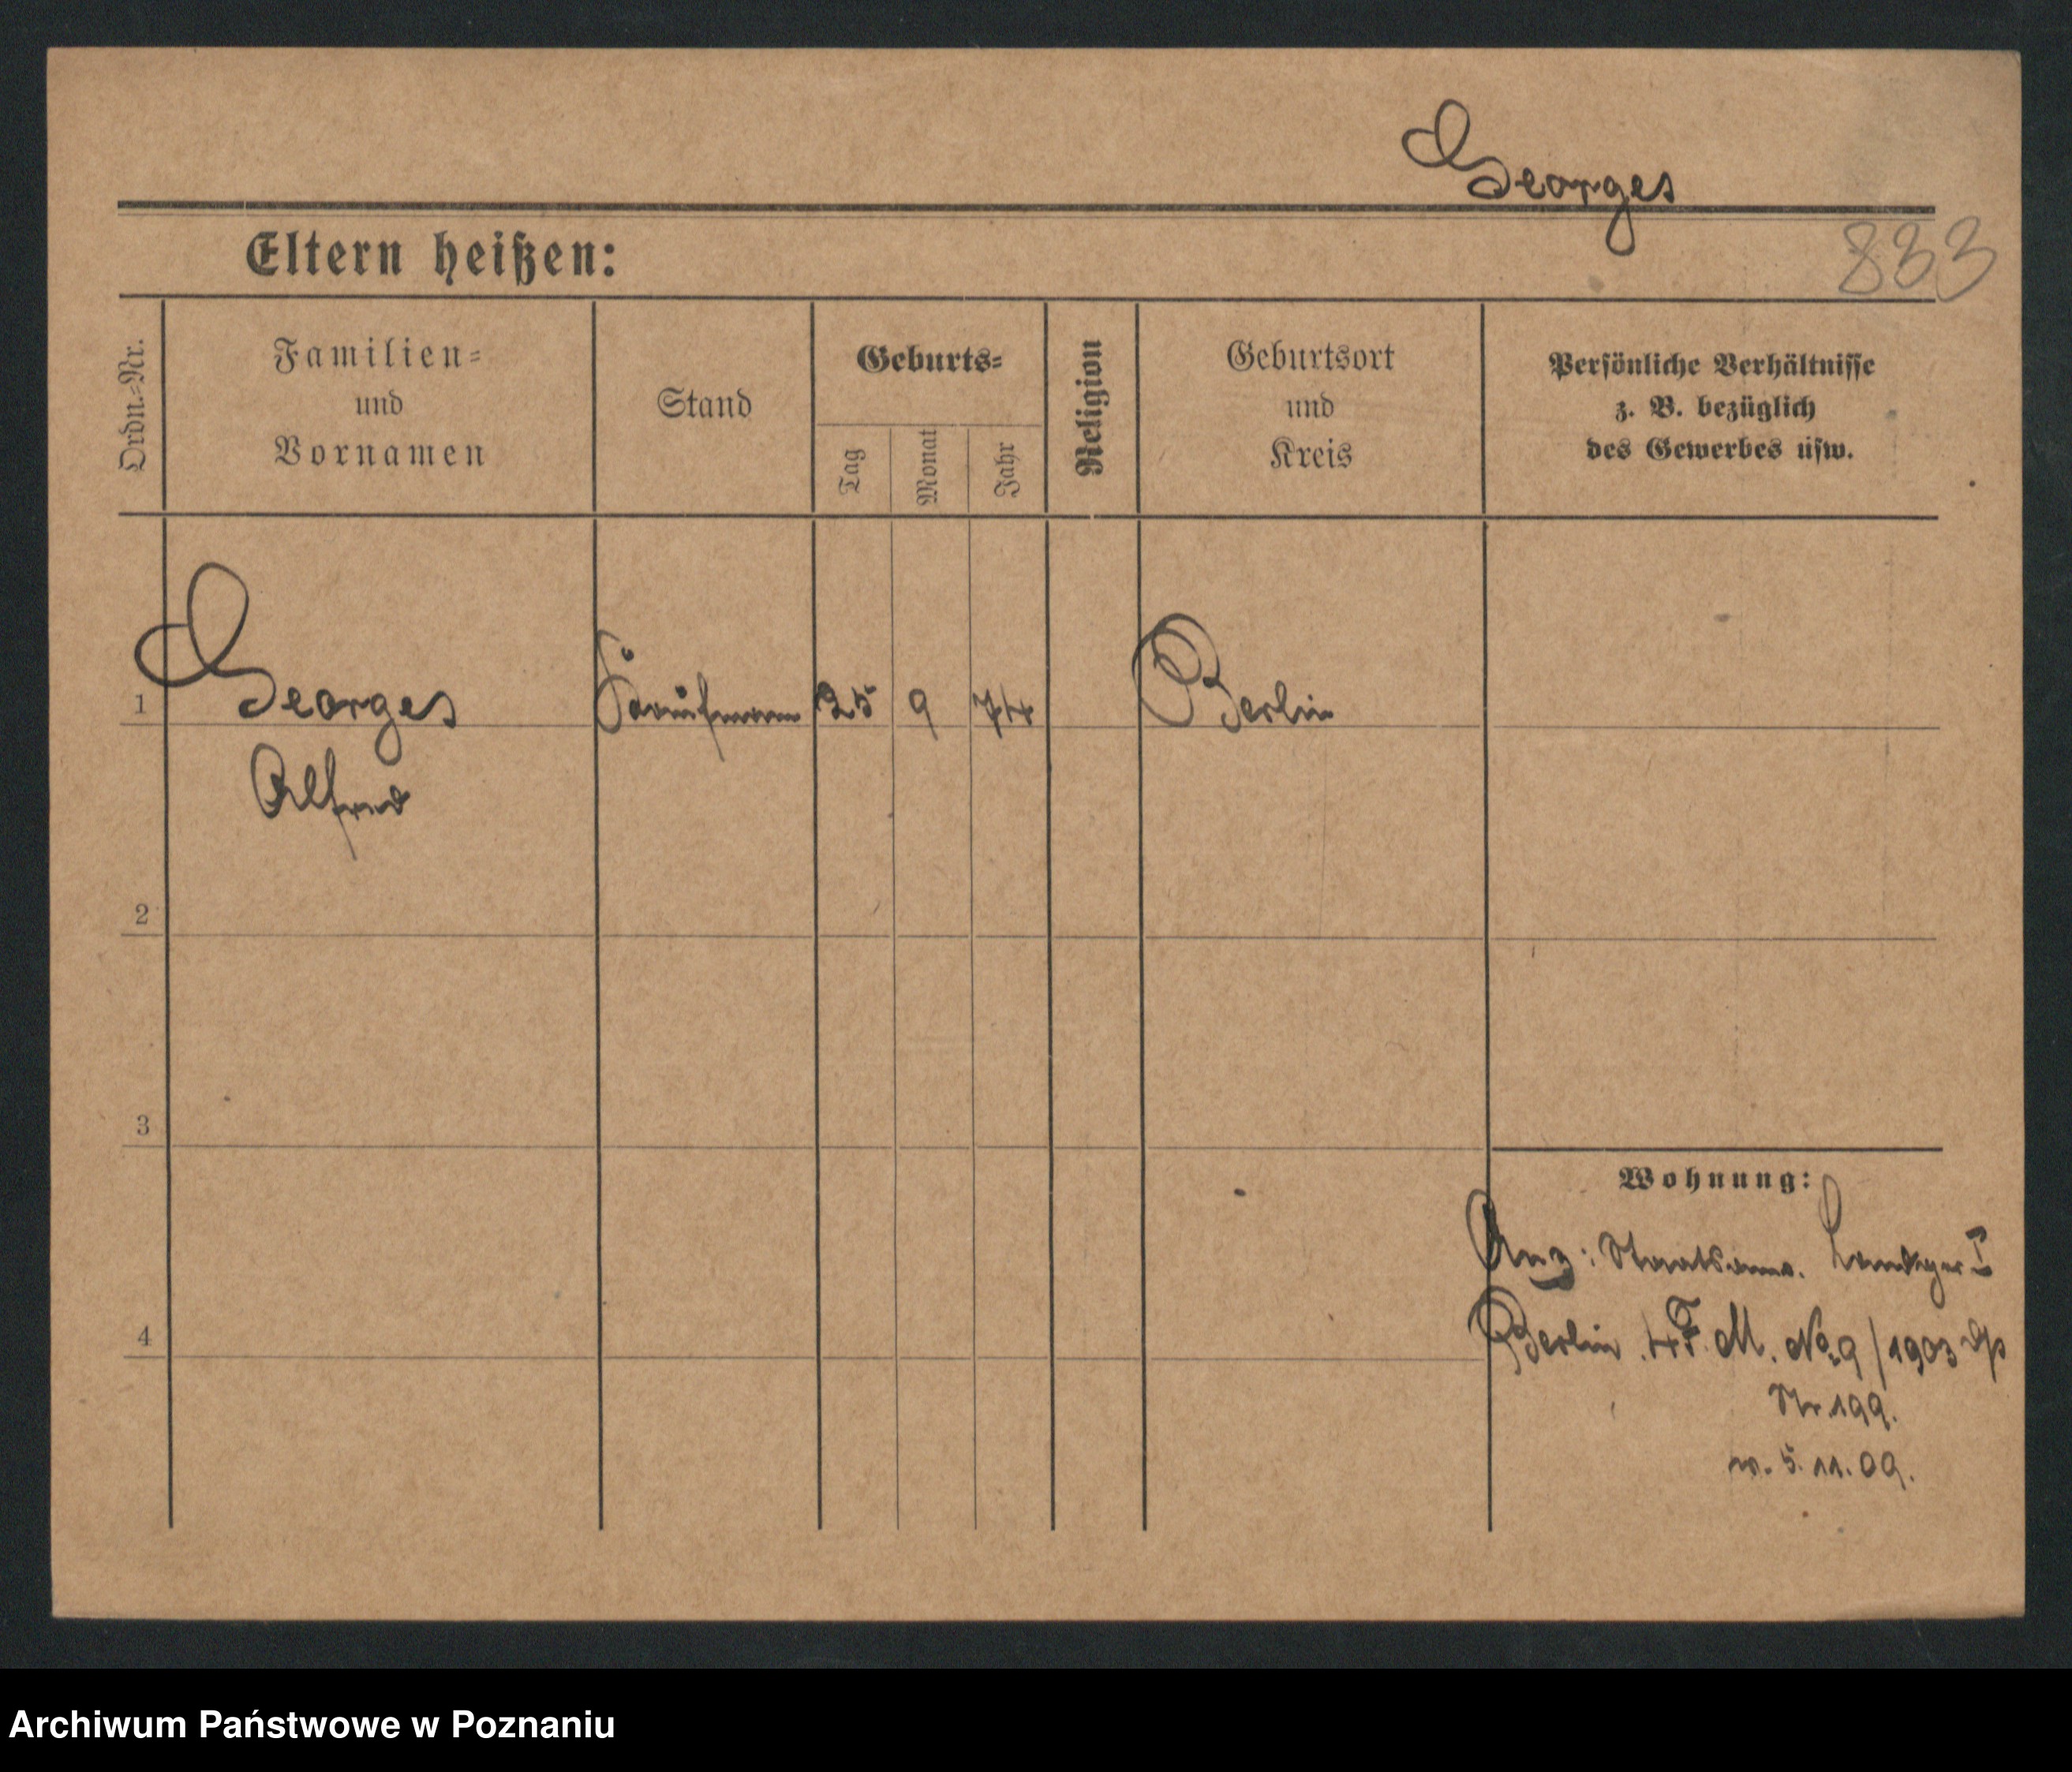 Georges
833
Eltern heißen:
Ordn.-Nr.
Familien-
und
Vornamen
Stand
Geburts-
Tag
Monat
Jahr
Religion
Geburtsort
und
Kreis
Persönliche Verhältnisse
z. B. bezüglich
des Gewerbes usw.
1 Georges Kaufmann 25 9 74 Berlin
Alfred
2
3
Wohnung:
Anz: Staatsanw. Landger I
4 Berlin 4 F. M. No 29/1903
Nr 199.
v. 5. 11. 09.
Archiwum Państwowe w Poznaniu